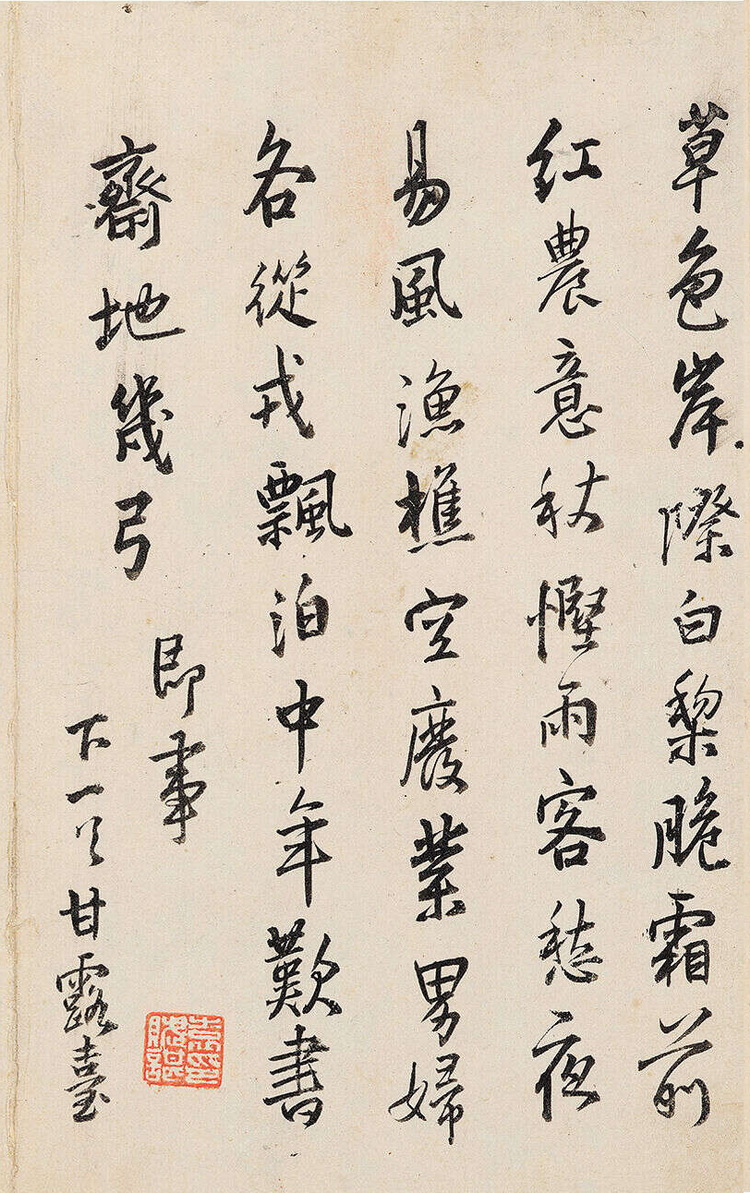 草色岸際白棃脆霜前
紅農意秋慳雨客愁夜
易風漁樵空廢業男婦
各從戎飄泊中年歎書
齋地幾弓
即事
下一 甘露臺